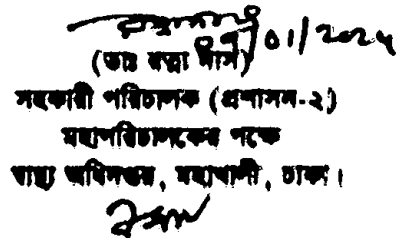 ০৭/01/2024
(ডাঃ রত্না দাস)
সহকারী পরিচালক (প্রশাসন-২)
মহাপরিচালকের পক্ষে
স্বাস্থ্য অধিদপ্তর, মহাখালী, ঢাকা।